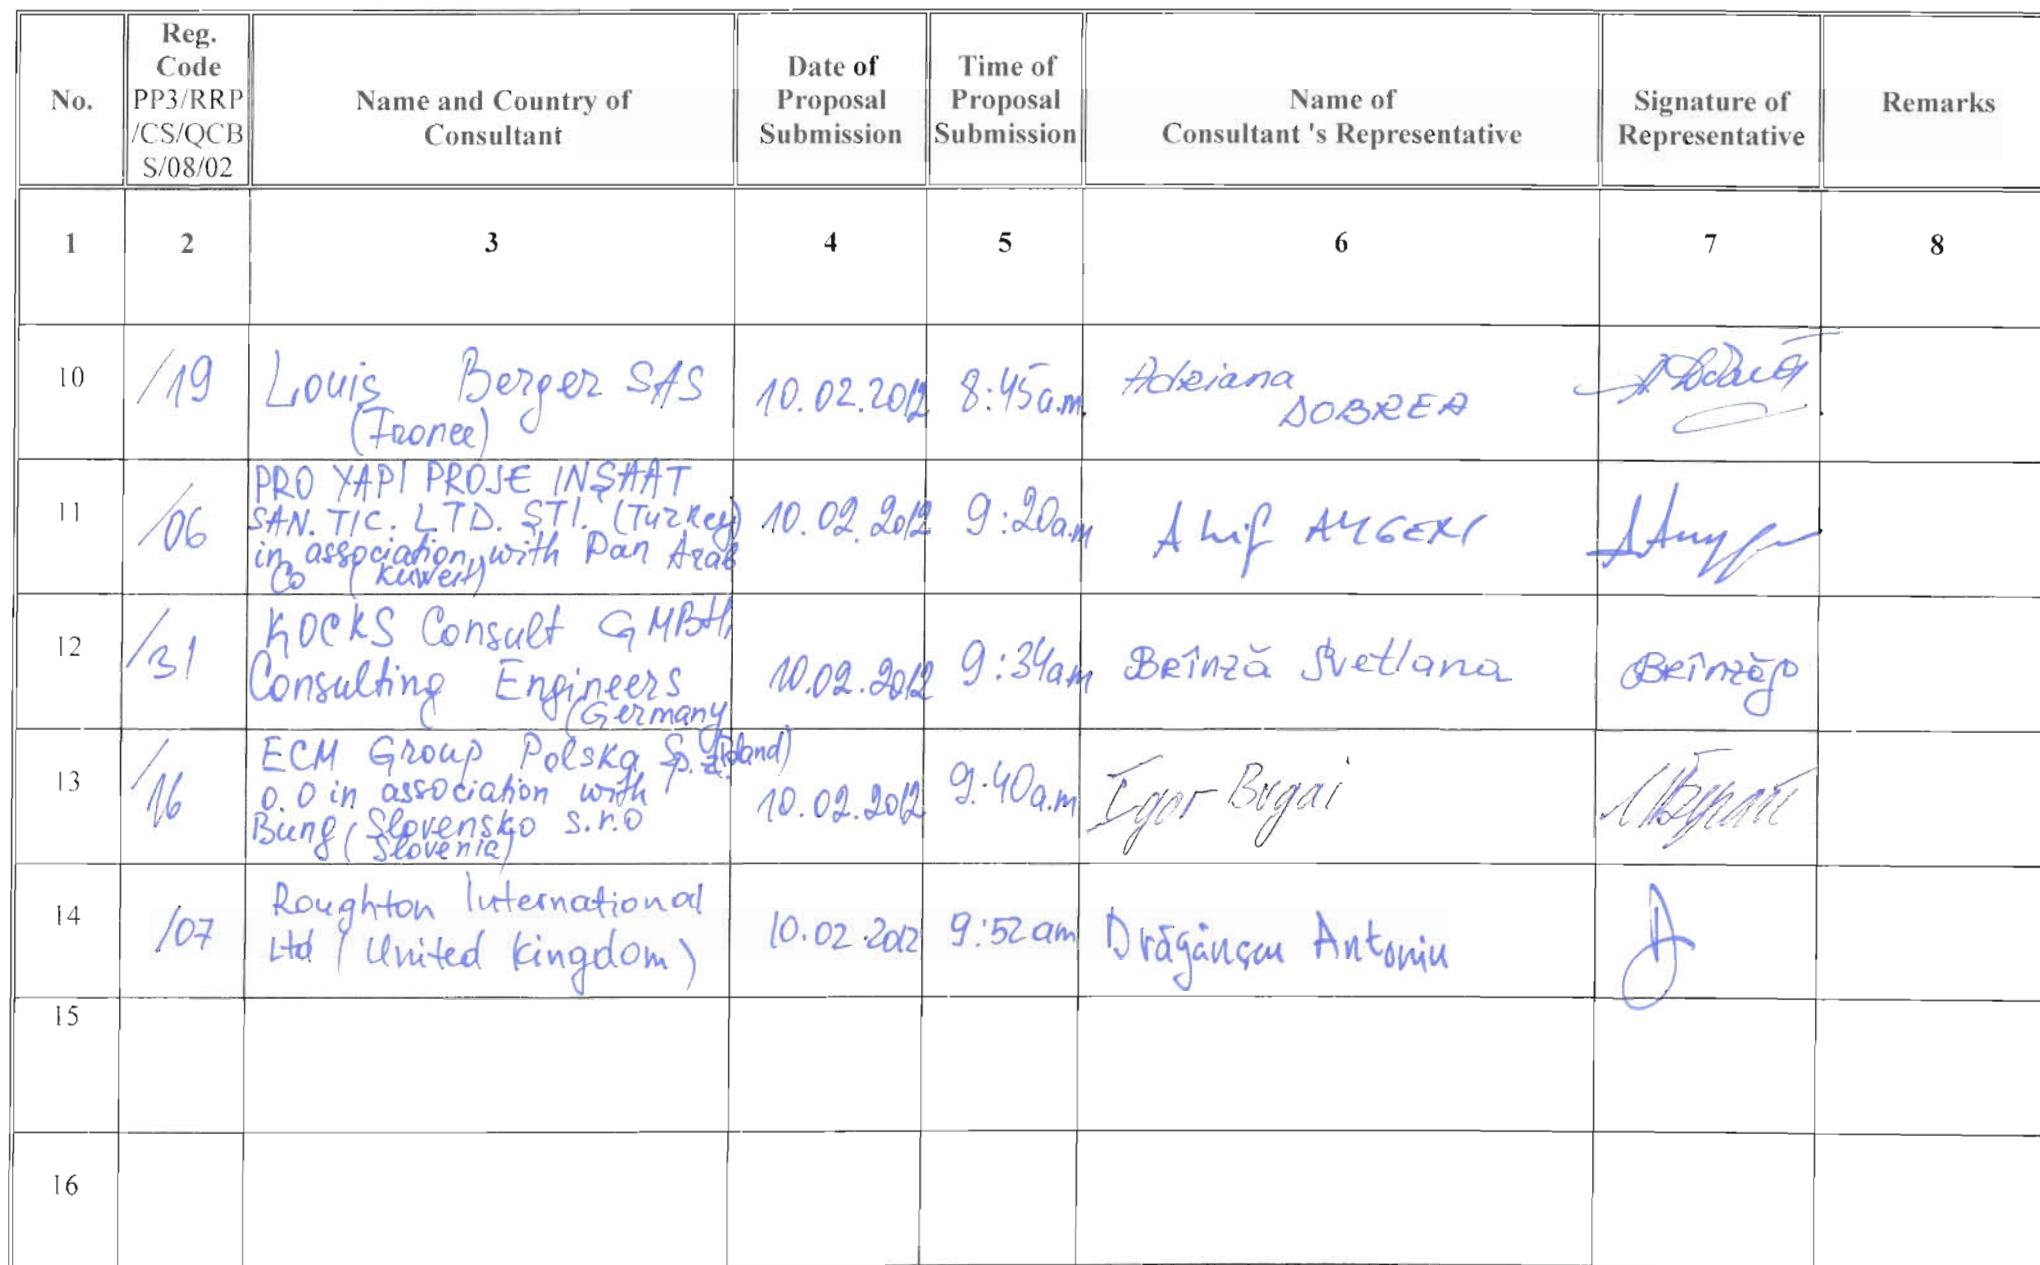 No.
Reg.
Code
PP3/RRP
/CS/QCB
S/08/02
Name and Country of
Consultant
Date of
Proposal
Submission
Time of
Proposal
Submission
Name of
Consultant 's Representative
Signature of
Representative
Remarks
1 2 3 4 5 6 7 8
10 /19
Louis Berger SAS
(France)
10.02.2012 8:45a.m
Adriana
DOBREA
11 /06
PRO YAPI PROJE INŞAAT
SAN. TIC. LTD. ŞTI. (Turkey)
in association with Pan Arab
Co (Kuweit)
10.02.2012 9:20a.m
12 /31
KOCKS Consult GMBH,
Consulting Engineers
(Germany
10.02.2012 9:34am
Brînză Svetlana
Brînză
13 /16
ECM Group Polska Sp. z. (Poland)
o.o in association with
Bung Slovensko s.r.o
(Slovenia)
10.02.2012 9:40a.m
Igor Bugai
14 /07
Roughton International
Ltd (United Kingdom)
10.02.2012 9:52am
Drăgănscu Antoniu
15
16